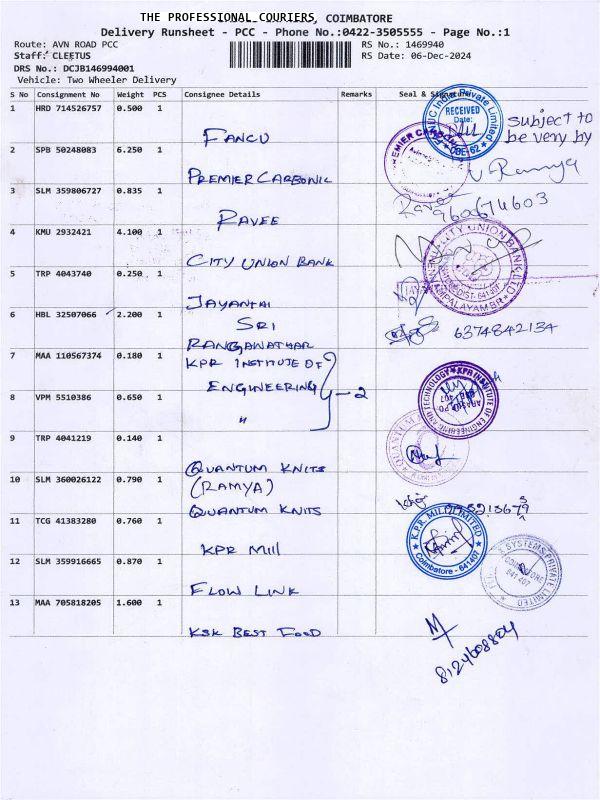 THE PROFESSIONAL COURIERS, COIMBATORE
Delivery Runsheet - PCC - Phone No.:0422-3505555 - Page No.:1
Route: AVN ROAD PCC
RS No.: 1469940
Staff: CLEETUS
RS Date: 06-Dec-2024
DRS No.: DCJB146994001
Vehicle: Two Wheeler Delivery
S No Consignment No Weight PCS Consignee Details Remarks Seal & Signature
1 HRD 714526757 0.500 1
FANCU
RECEIVED
Date:
CBE-62
Subject to
be very by
2 SPB 50248083 6.250 1
PREMIER CARBONIC
Ramya
3 SLM 359806727 0.835 1
RAVEE
4 KMU 2932421 4.100 1
CITY UNION BANK
CITY UNION BANK LTD
5 TRP 4043740 0.250 1
JAYANTHI
6 HBL 32507066 2.200 1
SRI
RANGANATHAR
6374842134
7 MAA 110567374 0.180 1
KPR INSTITUTE OF
ENGINEERING
2
8 VPM 5510386 0.650 1
"
KPR INSTITUTE OF ENGINEERING AND TECHNOLOGY
9 TRP 4041219 0.140 1
QUANTUM KNITS
(RAMYA)
QUANTUM
10 SLM 360026122 0.790 1
QUANTUM KNITS
11 TCG 41383280 0.760 1
KPR Mill
K.P.R. MILL LIMITED
Coimbatore - 641407
12 SLM 359916665 0.870 1
FLOW LINK
SYSTEMS PRIVATE LIMITED
COIMBATORE
641 407
13 MAA 705818205 1.600 1
KSK BEST FOOD
8124608804